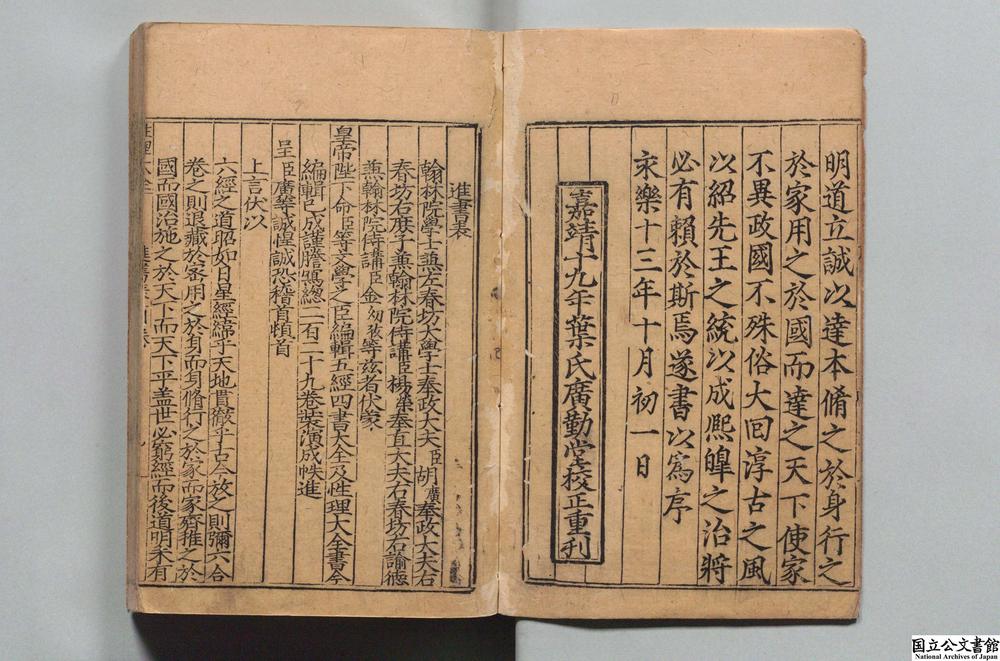 明道立誠以達本脩之於身行之
於家用之於國而達之天下使家
不異政國不殊俗大回淳古之風
以紹先王之統以成熈皥之治將
必有賴於斯焉遂書以爲序
永樂十三年十月初一日
嘉靖十九年葉氏廣勤堂校正重刊
進書表
翰林院學士兼左春坊大學士奉政大夫臣胡廣奉政大夫右
春坊右庶子兼翰林院侍講臣楊榮奉直大夫右春坊右諭德
兼翰林院侍講臣金幼孜等兹者伏蒙
皇帝陛下命臣等文學之臣編輯五經四書大全及性理大全書今
編輯已成謹謄寫總二百二十九卷裝演成帙進
呈臣廣等誠惶誠恐稽首頓首
上言伏以
六經之道昭如日星經緯乎天地貫徹乎古今放之則彌六合
卷之則退藏於密用之於身而身脩行之於家而家齊推之於
國而國治施之於天下而天下平盖世必窮經而後道明未有
性理大全
国立公文書館
National Archives of Japan